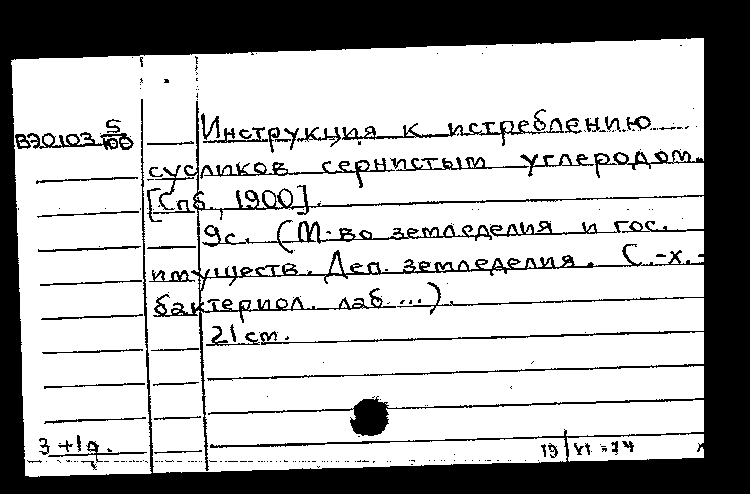 Инструкция к истреблению
В20103 5/100
сусликов сернистым углеродом.
[Спб., 1900].
9с. (М-во земледелия и гос.
имуществ. Деп. земледелия. С.-х.-
бактериол. лаб...).
21 см.
3+1д.
19/VI-74